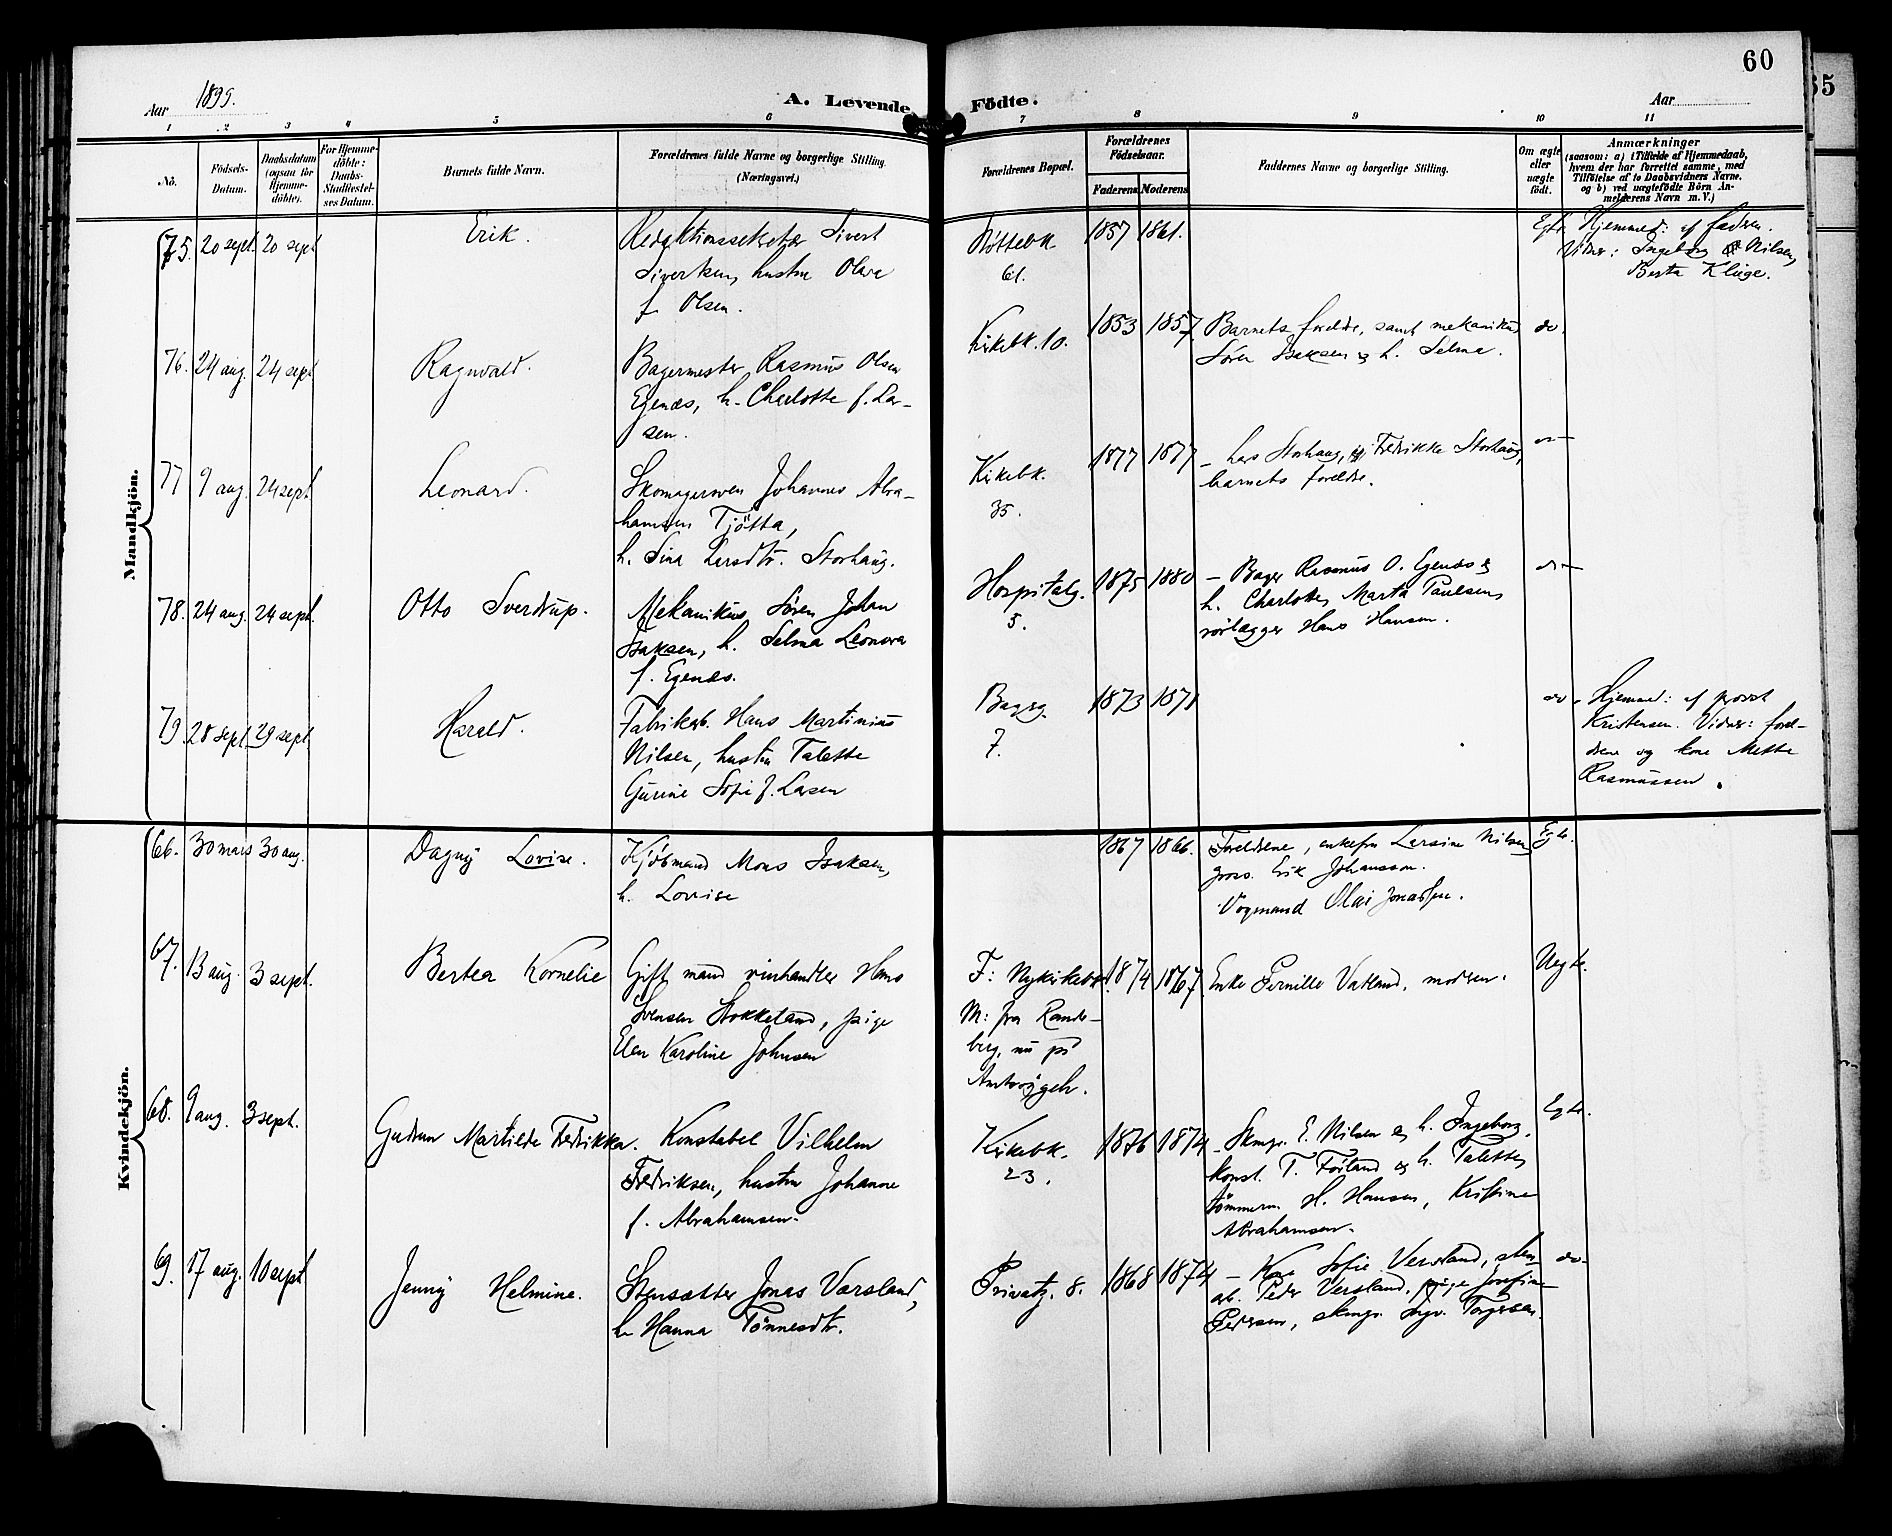 60
65
Aar 1899.
A. Levende Födte.
Aar
1 2 3 4 5 6 7 8 9 10 11
Nô.
Födsels-Datum.
Daabsdatum (ogsaa för Hjemme-döbte).
For Hjemme-döbte: Daabs-Stadfæstel-ses Datum.
Barnets fulde Navn.
Forældrenes fulde Navne og borgerlige Stilling.
(Næringsvei.)
Forældrenes Bopæl.
Forældrenes Födselsaar.
Faderens Moderens
Faddernes Navne og borgerlige Stilling.
Om ægte eller uægte födt.
Anmærkninger
(saasom: a) i Tilfælde af Hjemmedaab,
hvem der har forrettet samme, med
Tilföielse af to Daabsvidners Navne.
og b) ved uægtefödte Börn An-
melderens Navn m. V.)
Mandkjön.
75. 20 sept. 20 sept Erik. Redaktionssekretær Sivert
Sivertsen, hustru Olava
f. Olsen.
61.
1857 1861.
Egte
Hjemmed: af fadren.
Vidner: Ingeborg Nilsen,
Berta Kluge.
76. 24 aug. 24 sept Ragnvald. Bagermester Rasmus Olsen
Egenæs, h. Charlotte f. Lar-
sen.
Kirkebk. 10. 1853 1857
Barnets foreldre, samt mekanikus
Sören Isaksen og h. Selma.
do.
77 9 aug. 24 sept Leonard. Skomagersven Johannes Abra-
hamsen Tjötta,
h. Sina Larsdtr. Storhaug.
Kirkebk.
35.
1877 1877
– Lars Storhaug, Fredrikke Storhaug,
barnets foreldre.
78. 24 aug. 24 sept. Otto Sverdrup. Mekanikus Sören Johan
Isaksen, h. Selma Leonora
f. Egenæs.
Hospitalg.
5.
1875 1880
– Bager Rasmus O. Egenæs og
h. Charlotte, Marta Paulsen,
rörlægger Hans Hansen.
79. 28 sept. 29 sept Harald. Fabrikarb. Hans Martinius
Nilsen, hustru Talette
Gurine Sofie f. Larsen
7.
1873 1871
do.
Hjemmed: af provst
Kristensen. Vidner: forel-
drene og kone Mette
Rasmussen.
Kvindekjön.
66. 30 mars 30 aug. Dagny Lovise. Kjöbmand Mons Isaksen,
h. Lovise
1867 1866.
Foreldrene, enkefru Larsine Nilsen,
gross. Erik Johansson.
Olai Jonassen.
Egte.
67. 13 aug. 3 sept. Bertea Kornelie Gift mand vinhandler Hans
Svensen Stokkeland, pige
Elen Karoline Johnsen
F: Nykirkebk.
M: fra Rande-
berg, nu på
1874 1867
Enke Pernille Vatland, modren.
Uegte.
68. 9 aug. 3 sept. Gudrun Martilde Fredrikka. Konstabel Vilhelm
Fredriksen, hustru Johanne
f. Abrahamsen.
Kirkebk.
23.
1876 1874
– Skmgr. E. Nilsen og h. Ingeborg,
konst. T. Förland og h. Talette,
tömmerm. H. Hansen, Kristine
Abrahamsen.
Egte.
69. 17 aug. 10 sept Jenny Helmine. Stensætter Jonas Varsland,
h. Hanna Tönnesdtr.
Privatg. 8. 1868 1874
– Kone Sofie Versland, sten-
arb. Peder Versland, pige Josefine
Pedersen, skmgr. Ingv. Torgersen.
do.